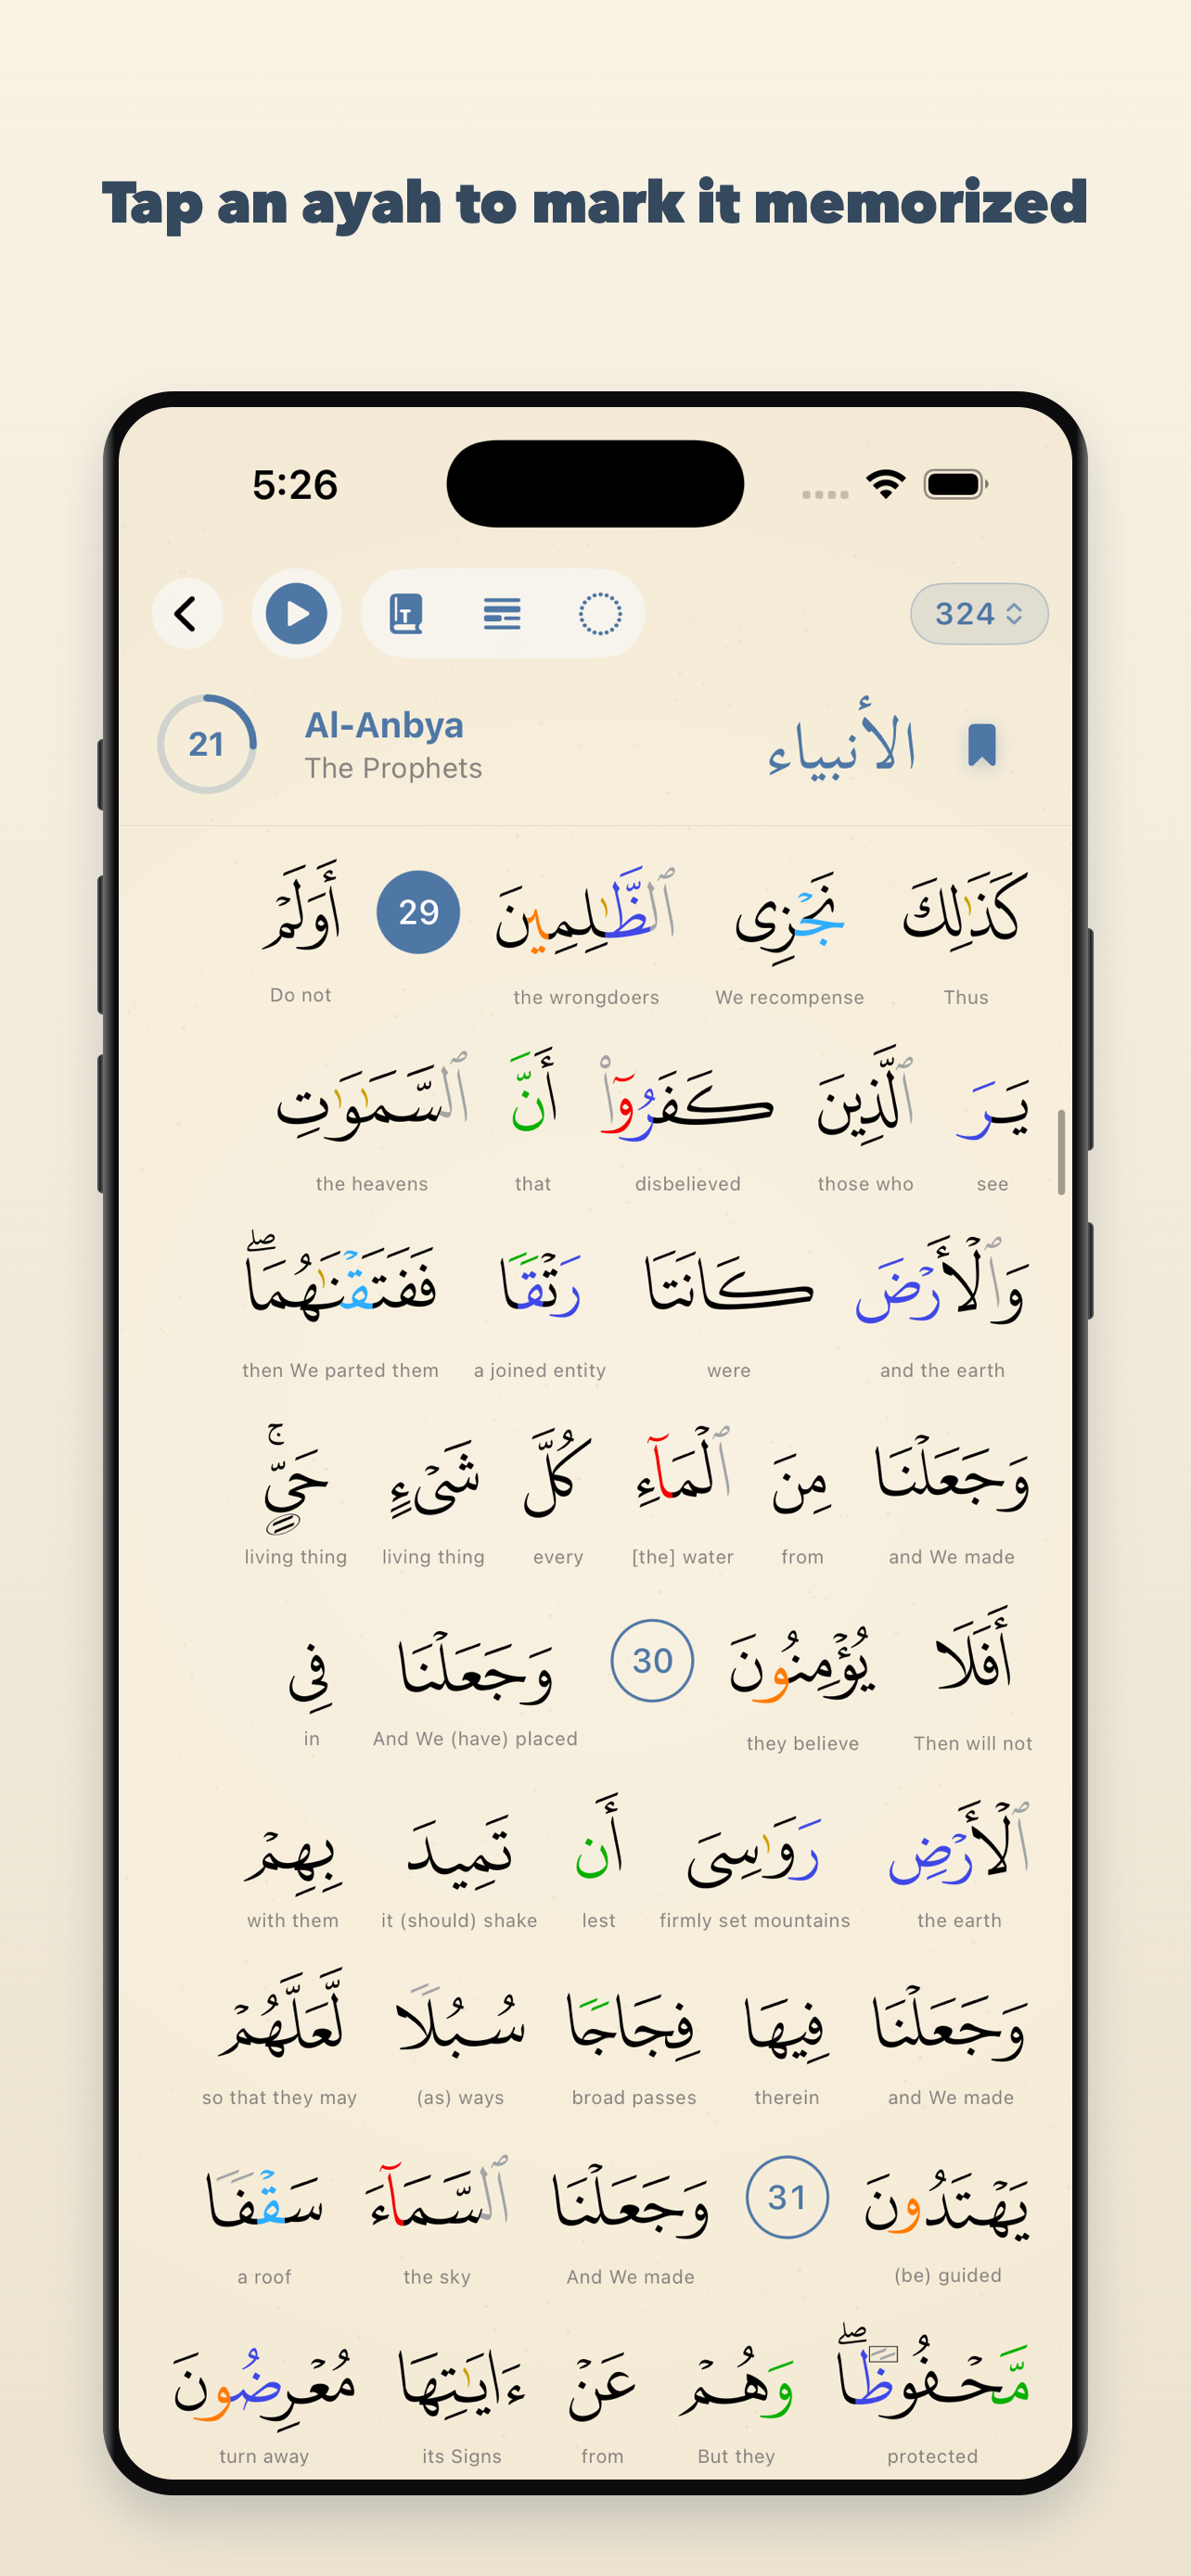 Tap an ayah to mark it memorized
5:26
324
21
Al-Anbya
The Prophets
الأنبياء
كَذَٰلِكَ نَجْزِى ٱلظَّـٰلِمِينَ 29 أَوَلَمْ
Thus We recompense the wrongdoers Do not
يَرَ ٱلَّذِينَ كَفَرُوٓا۟ أَنَّ ٱلسَّمَـٰوَٰتِ
see those who disbelieved that the heavens
وَٱلْأَرْضَ كَانَتَا رَتْقًا فَفَتَقْنَـٰهُمَا ۖ
and the earth were a joined entity then We parted them
وَجَعَلْنَا مِنَ ٱلْمَآءِ كُلَّ شَىْءٍ حَىٍّ ۚ
and We made from [the] water every living thing living thing
أَفَلَا يُؤْمِنُونَ 30 وَجَعَلْنَا فِى
Then will not they believe And We (have) placed in
ٱلْأَرْضِ رَوَٰسِىَ أَن تَمِيدَ بِهِمْ
the earth firmly set mountains lest it (should) shake with them
وَجَعَلْنَا فِيهَا فِجَاجًا سُبُلًا لَّعَلَّهُمْ
and We made therein broad passes (as) ways so that they may
يَهْتَدُونَ 31 وَجَعَلْنَا ٱلسَّمَآءَ سَقْفًا
(be) guided And We made the sky a roof
مَّحْفُوظًا ۖ وَهُمْ عَنْ ءَايَـٰتِهَا مُعْرِضُونَ
protected But they from its Signs turn away